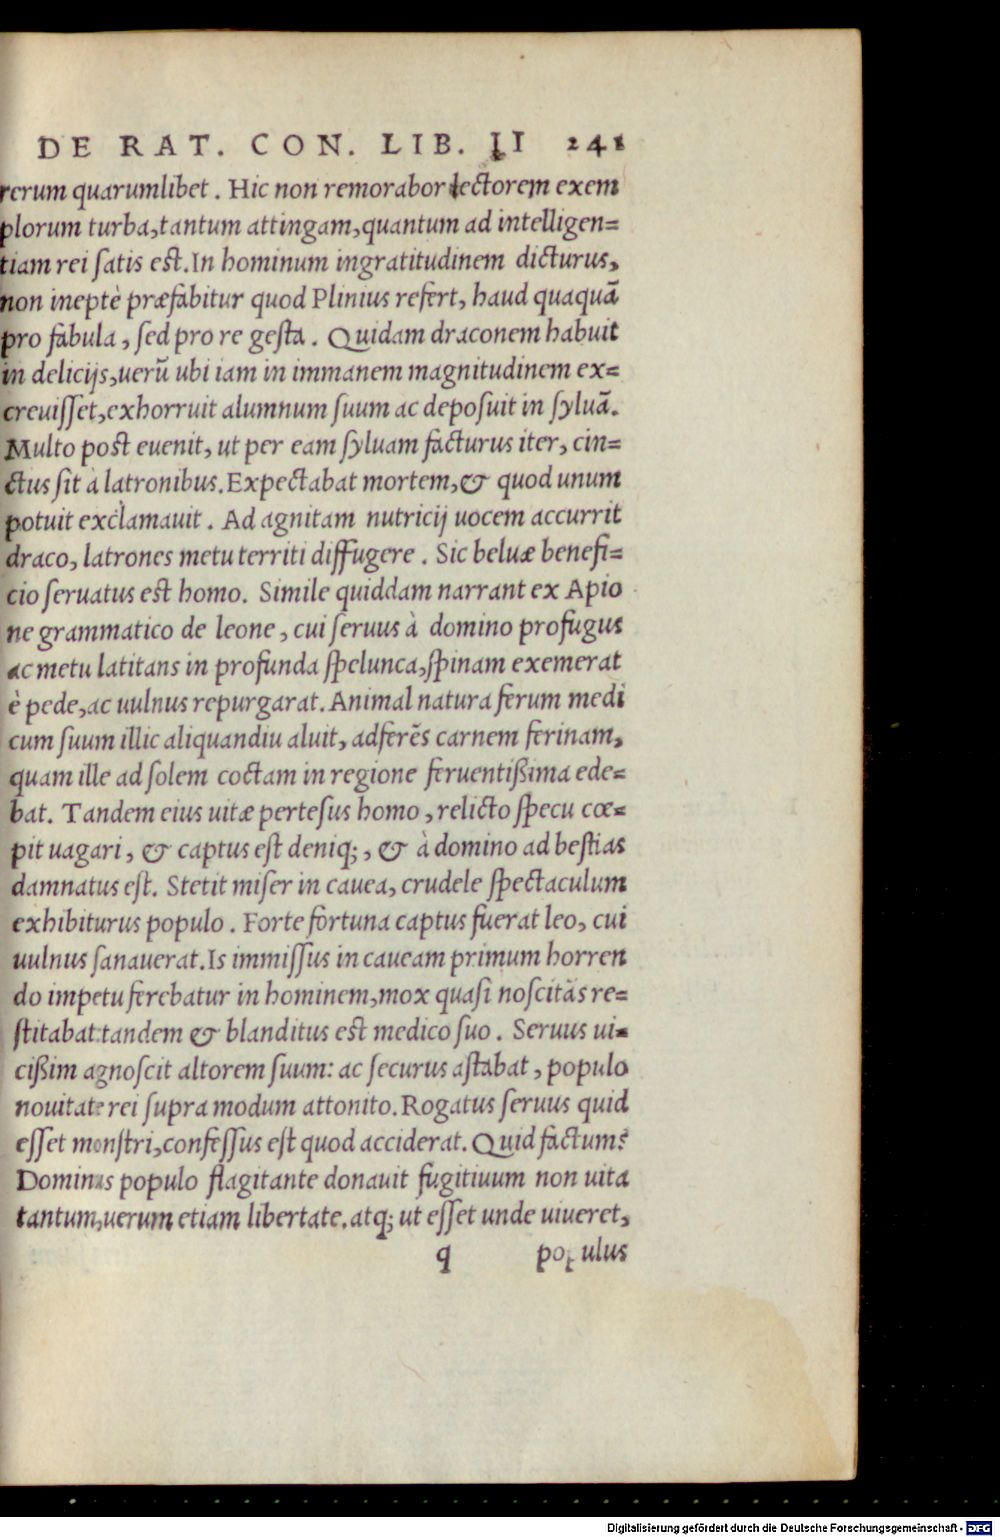 DE RAT. CON. LIB. II 241
rerum quarumlibet. Hic non remorabor lectorem exem
plorum turba, tantum attingam, quantum ad intelligen=
tiam rei satis est. In hominum ingratitudinem dicturus,
non ineptè præfabitur quod Plinius refert, haud quaquã
pro fabula, sed pro re gesta. Quidam draconem habuit
in delicijs, uerũ ubi iam in immanem magnitudinem ex=
creuisset, exhorruit alumnum suum ac deposuit in syluã.
Multo post euenit, ut per eam syluam facturus iter, cin=
ctus sit à latronibus. Expectabat mortem, & quod unum
potuit exclamauit. Ad agnitam nutricij uocem accurrit
draco, latrones metu territi diffugere. Sic beluæ benefi=
cio seruatus est homo. Simile quiddam narrant ex Apio
ne grammatico de leone, cui seruus à domino profugus
ac metu latitans in profunda spelunca, spinam exemerat
è pede, ac uulnus repurgarat. Animal natura ferum medi
cum suum illic aliquandiu aluit, adferẽs carnem ferinam,
quam ille ad solem coctam in regione feruentißima ede=
bat. Tandem eius uitæ pertesus homo, relicto specu cœ=
pit uagari, & captus est deniq;, & à domino ad bestias
damnatus est. Stetit miser in cauea, crudele spectaculum
exhibiturus populo. Forte fortuna captus fuerat leo, cui
uulnus sanauerat. Is immissus in caueam primum horren
do impetu ferebatur in hominem, mox quasi noscitãs re=
stitabat: tandem & blanditus est medico suo. Seruus ui=
cißim agnoscit altorem suum: ac securus astabat, populo
nouitate rei supra modum attonito. Rogatus seruus quid
esset monstri, confessus est quod acciderat. Quid factum?
Dominus populo flagitante donauit fugitiuum non uita
tantum, uerum etiam libertate. atq; ut esset unde uiueret,
q populus
Digitalisierung gefördert durch die Deutsche Forschungsgemeinschaft - DFG